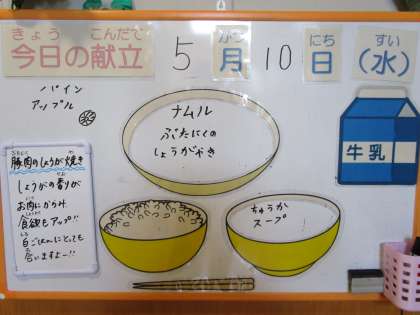 きょう こんだて
今日の献立
5 がつ 月 10 にち 日 (すい 水)
パイン
アップル
ナムル
ぶたにくの
しょうがやき
牛乳
豚肉のしょうが焼き
しょうがの香りが
お肉にからみ
食欲もアップ!!
白ごはんにとても
合いますよー!!
ちゅうか
スープ